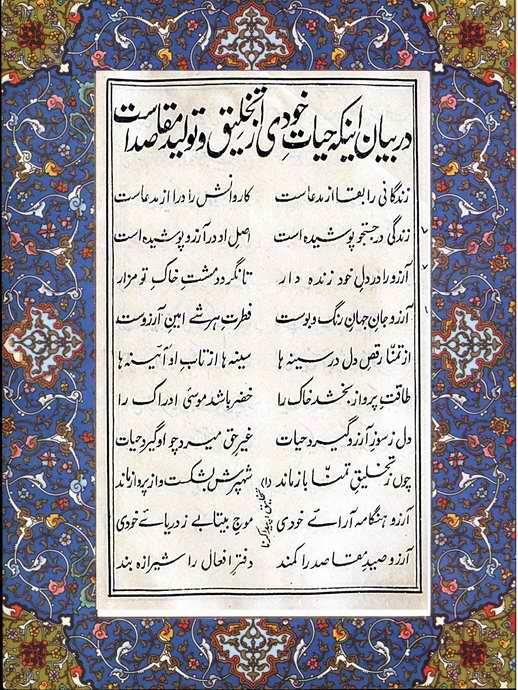 در بیان اینکه حیات خودی از تخلیق و تولید مقاصد است
زندگانی را بقا از مدعاست کاروانش را درا از مدعاست
زندگی در جستجو پوشیده است اصل او در آرزو پوشیده است
آرزو را در دل خود زنده دار تا نگردد مشت خاک تو مزار
آرزو جان جہان رنگ و بوست فطرت ہر شے امین آرزوست
از تمنّا رقص دل در سینہ ہا سینہ ہا از تاب او آئینہ ہا
طاقت پرواز بخشد خاک را خضر باشد موسیٰ ادراک را
دل ز سوز آرزو گیرد حیات غیر حق میرد چو او گیرد حیات
چوں ز تخلیق تمنّا باز ماند شہپرش بشکست و از پرواز ماند
آرزو ہنگامہ آراے خودی موج بیتابے ز دریاے خودی
آرزو صید مقاصد را کمند دفتر افعال را شیرازہ بند
(۱) تخلیق، پیدا کرنا